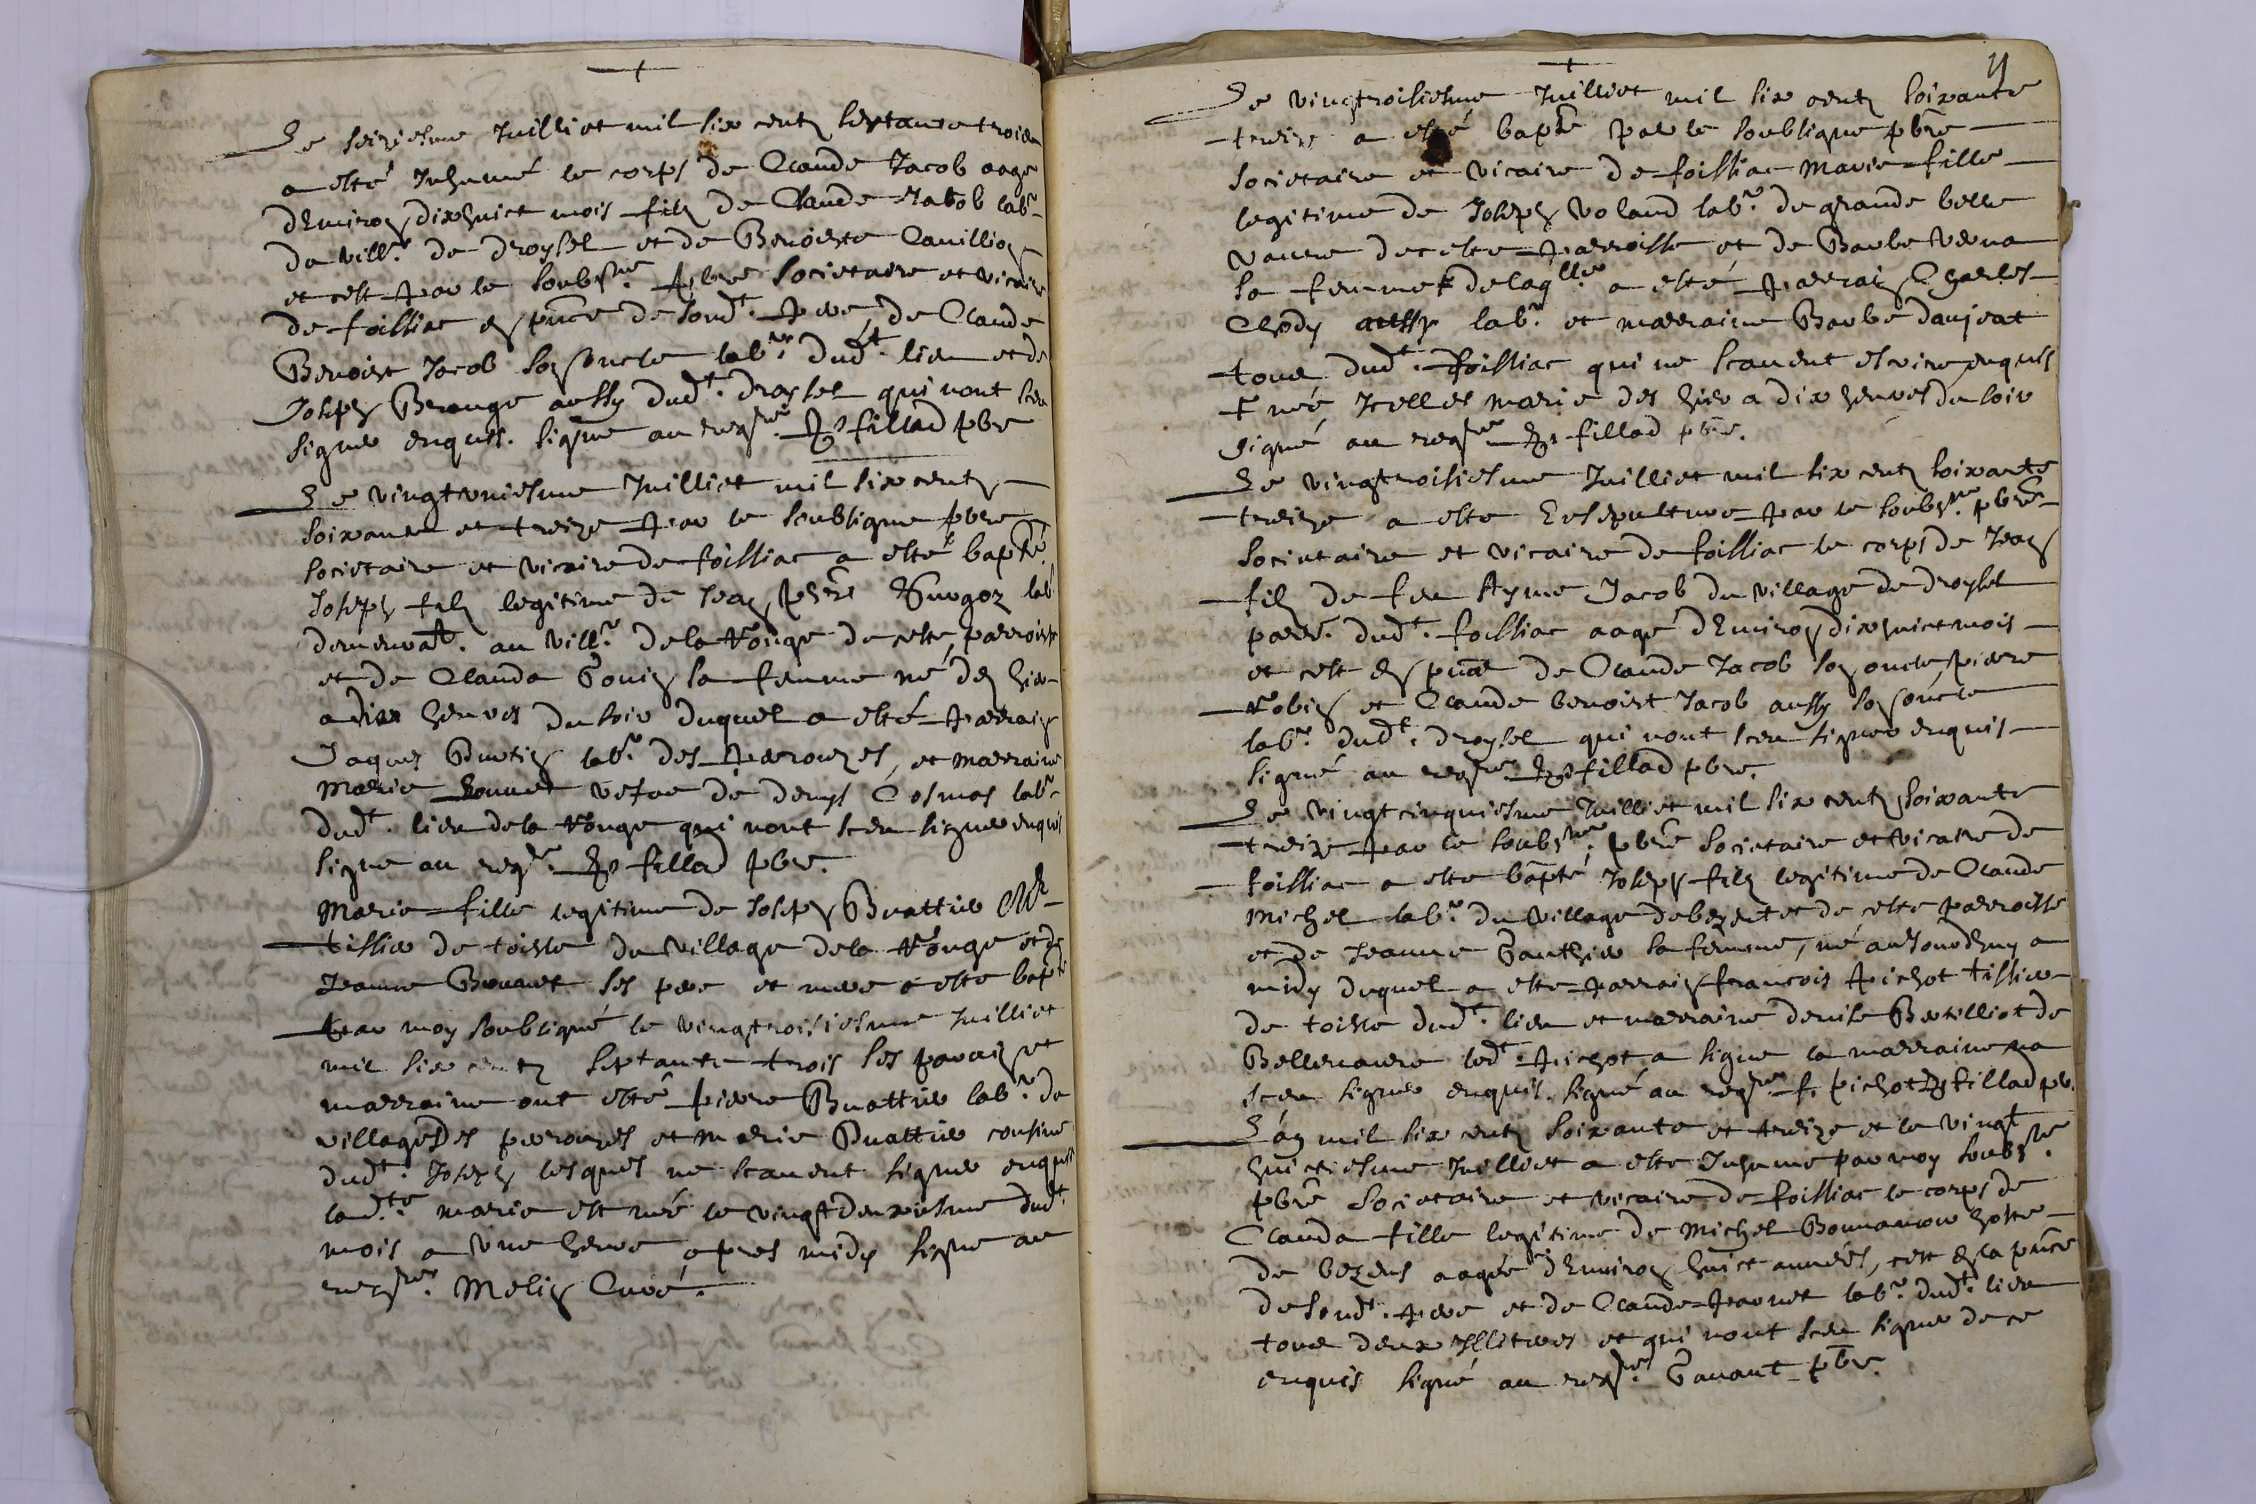 Le seiziesme Juilliet mil six centz septante trois
a esté Inhumé le corps de Claude Jacob aage
d'Enviroy dixhuict mois filz de Claude Jacob lab.r
du vill.e de droysel et de Benoiste Cauillioy
et cest par le soubs.ne pbre societaire et vicaire
de foissiac ey pnce de sond.t pere, de Claude
Benoist Jacob soy oncle lab.r dud.t lieu et de
Joseph Beronge aussy dud.t droysel qui n'ont sceu
signer enquis. signé au reg.re fillad pbre
Le vingtuniesme Juilliet mil six centz
soixante et treize par le soubsigne pbre
societaire et vicaire de foissiac a esté bapté
Joseph filz legitime de Jeay lab
demeurat. au vill.e de la Rouge de ceste parroisse
et de Clauda Gouiy sa femme né dez hier
a dix heures du soir duquel a esté parraiy
Jaques Buetiy lab.r des parrouzes, et marraine
Marie Bonnet vefve de denys Cosmas lab.r
dud.t lieu de la Rouge qui n'ont sceu signer enquis
signe au reg.re fillad pbre.
Marie fille legitime de Joseph Buattier M.e
tissier de toisle du village de la Rouge et de
Jeanne Bonnet ses pere et mere a esté bapte
par moy soubsigné le vingtroisiesme Juilliet
mil six centz septante trois ses paraiy et
marraine ont esté pierre Buattier lab.r du
village des parrouzes et Marie Buattier cousine
dud.t Joseph lesquels ne scauent signer enquis
lad.te marie est née le vingtdeuxiesme dud.t
mois a vne heure apres midy signe au
reg.re Meliy Curé.
11
Le vingtroisiesme Juilliet mil six centz soixante
treize a esté bapte par le soubsigne pbre
societaire et vicaire de foissiac Marie fille
legitime de Joseph Voland lab.r de grande belle
vauvre de ceste parroisse et de Barbe Verna
sa femme de laqlle a esté parraiy Charles
Chody aussy lab.r et marraine Barbe danjeat
tous dud.t foissiac qui ne scauent escrire enquis
née Icelles marie des hier a dix heures du soir
signé au reg.re fillad pbre.
Le vingtroisiesme Juilliet mil six centz soixante
treize a esté Ensepulturé par le soubs.ne pbre
societaire et vicaire de foissiac le corps de Jeay
filz de feu Ayme Jacob du village de droysel
parr.e dud.t foissiac aagé d'Enviroy dixhuict mois
et cest ey pnce de Claude Jacob soy oncle pierre
Robiy et Claude benoist Jacob aussy soy oncle
lab.r dud.t droysel qui n'ont sceu signer enquis
signé au reg.re fillad pbre.
Le vingtcinquiesme Juilliet mil six centz soixante
treize par le soubs.ne pbre societaire et vicaire de
foissiac a esté bapté Joseph filz legitime de Claude
Michel lab.r du village de bezent et de ceste parroisse
et de Jeanne Gauthier sa femme, né au jourdhuy a
midy duquel a esté parraiy francois pichot tissier
de toisle dud.t lieu et marraine denise Bertilliot de
Bellevauvre led.t pichot a signe la marraine na
sceu signer enquis. signé au reg.re f. pichot fillad pbr.
L'ay mil six centz soixante et treize et le vingt
huictiesme Juilliet a esté Inhumé par moy soubs.ne
pbre societaire et vicaire de foissiac le corps de
Clauda fille legitime de Michel Bonnamour hoste
de bezens aagée d'Enviroy huict années, cest ey la pnce
de sond.t pere et de Claude pauvnet lab.r dud.t lieu
tous deux Illitres et qui n'ont sceu signer de ce
enquis signé au reg.re Gauant pbre.